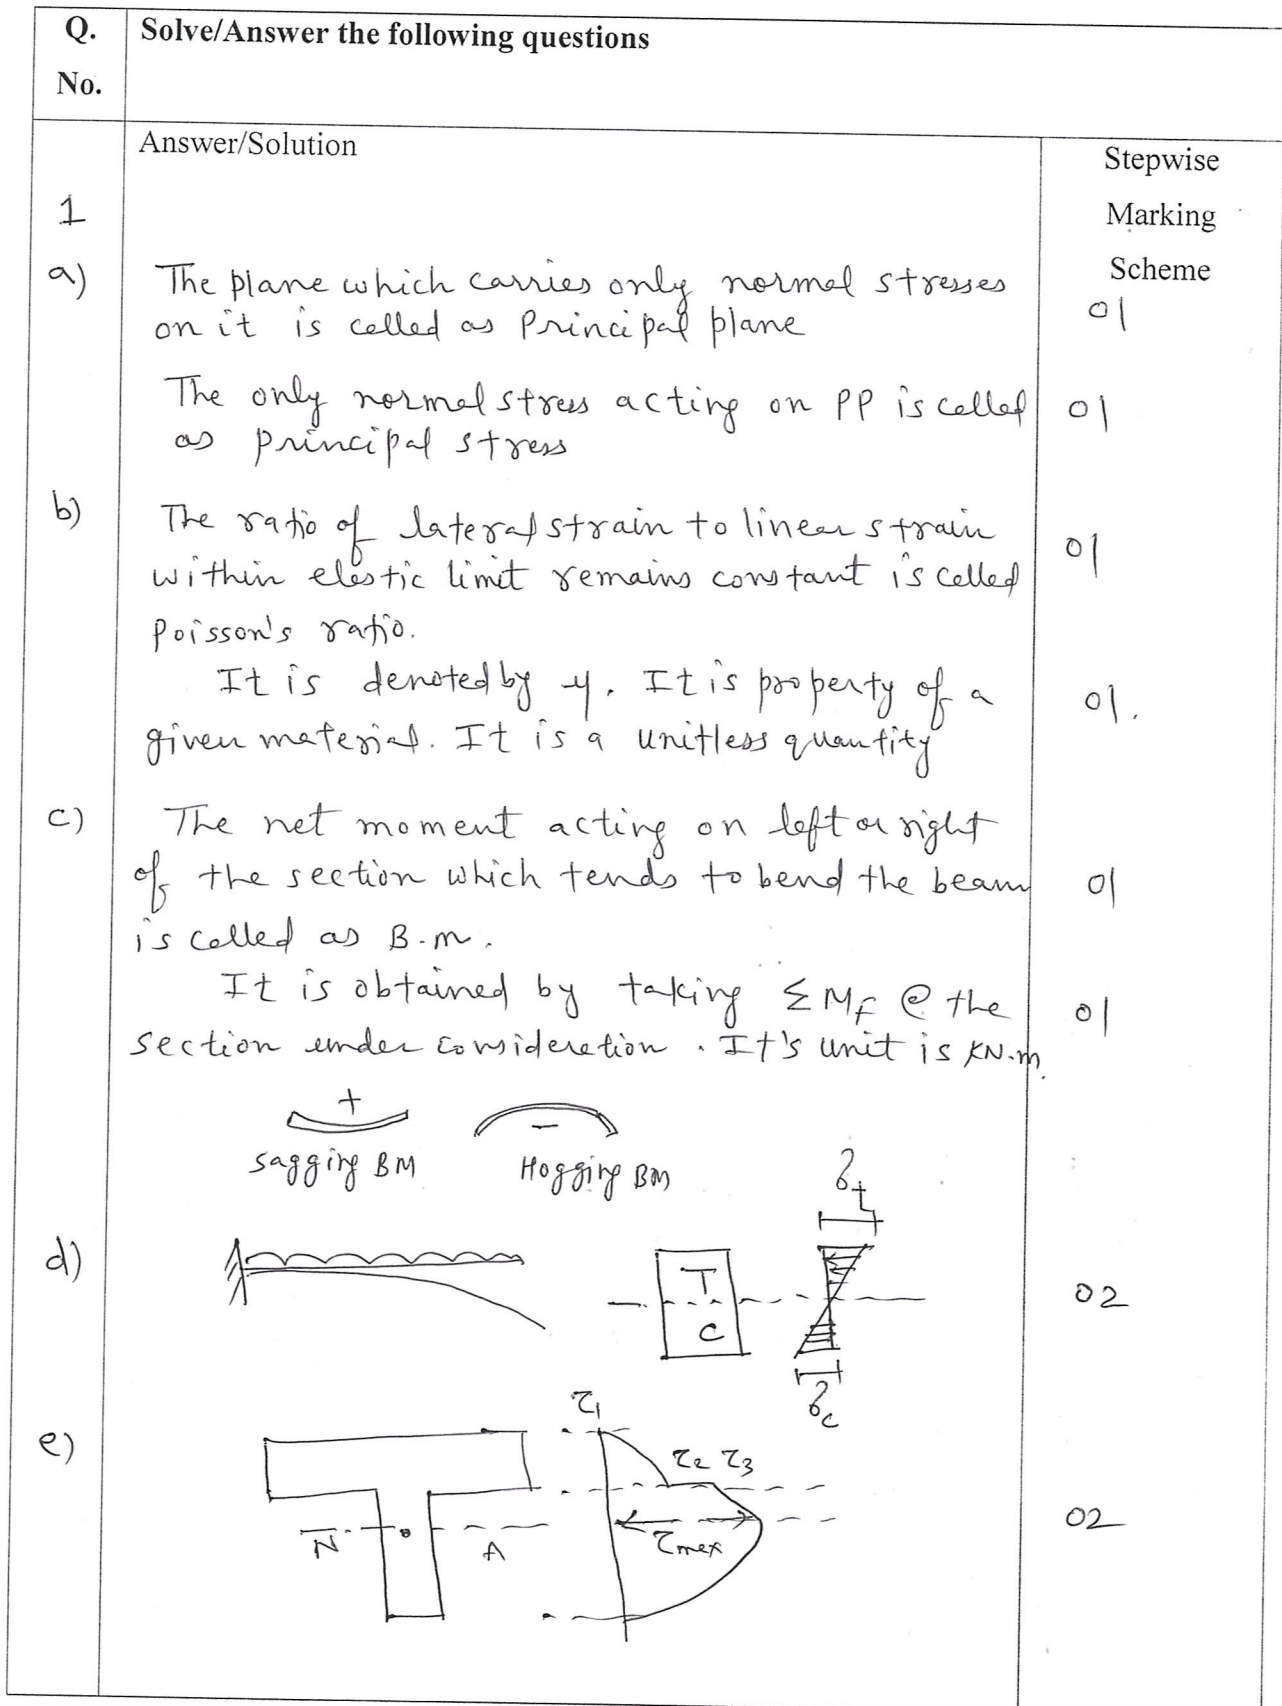 Q. Solve/Answer the following questions
No.
Answer/Solution
Stepwise
Marking
Scheme
1
a) The plane which carries only normal stresses 01
on it is called as Principal plane
The only normal stress acting on PP is called 01
as principal stress
b) The ratio of lateral strain to linear strain 01
within elastic limit remains constant is called
Poisson's ratio.
It is denoted by μ. It is property of a 01.
given material. It is a unitless quantity
c) The net moment acting on left or right
of the section which tends to bend the beam 01
is called as B.m.
It is obtained by taking ΣMF @ the 01
section under consideration. It's unit is KN.m.
+ -
Sagging BM Hogging BM
d) T 02
C
e) τ1
τ2 τ3
N A τmax 02